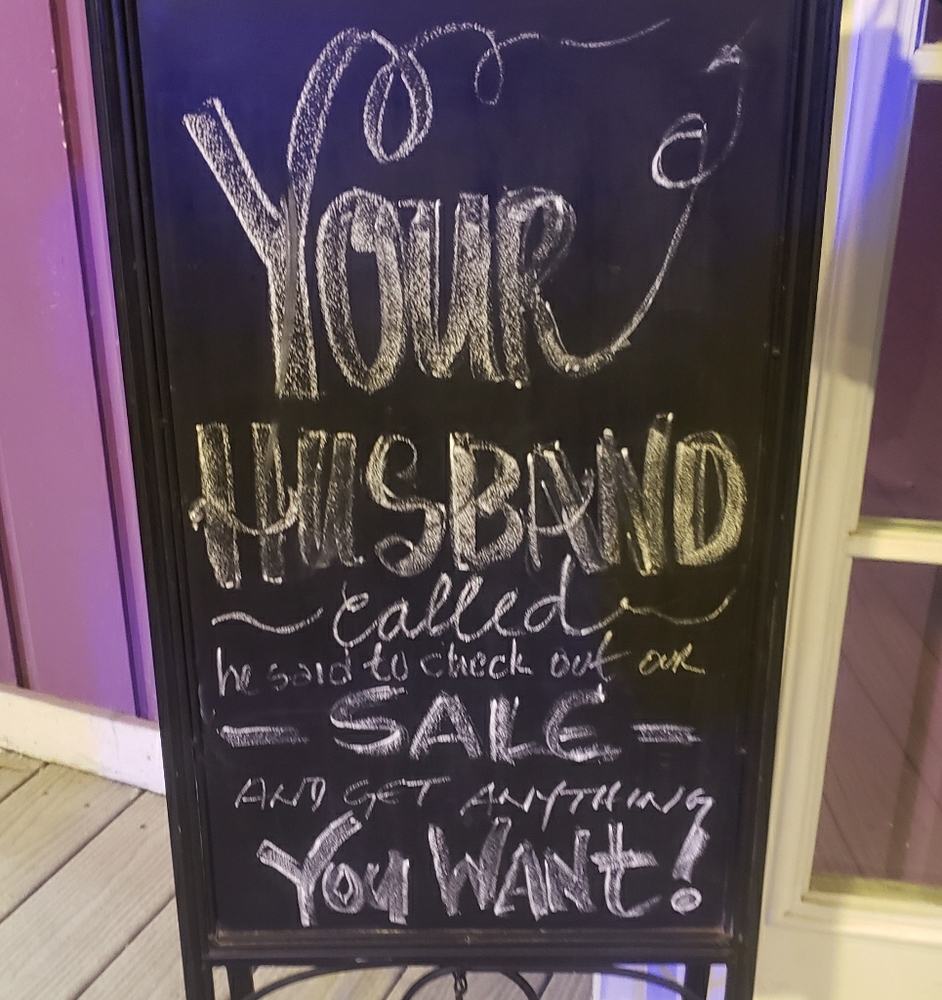 Your
HUSBAND
called
he said to check out our
- SALE -
AND GET ANYTHING
You WANt!